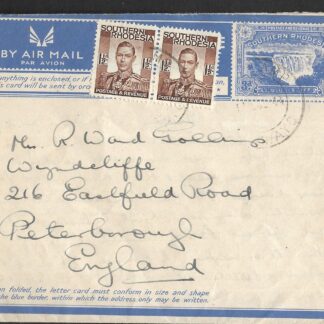 BY AIR MAIL
PAR AVION
SOUTHERN RHODESIA
POSTAGE & REVENUE
SOUTHERN RHODESIA
POSTAGE & REVENUE
SOUTHERN RHODESIA
anything is enclosed
card will be sent by ord
R. Ward
Wyndcliffe
216 Eastfield Road
Peterborough
England
folded, the letter card must conform in size and shape
the blue border, within which the address only may be written.